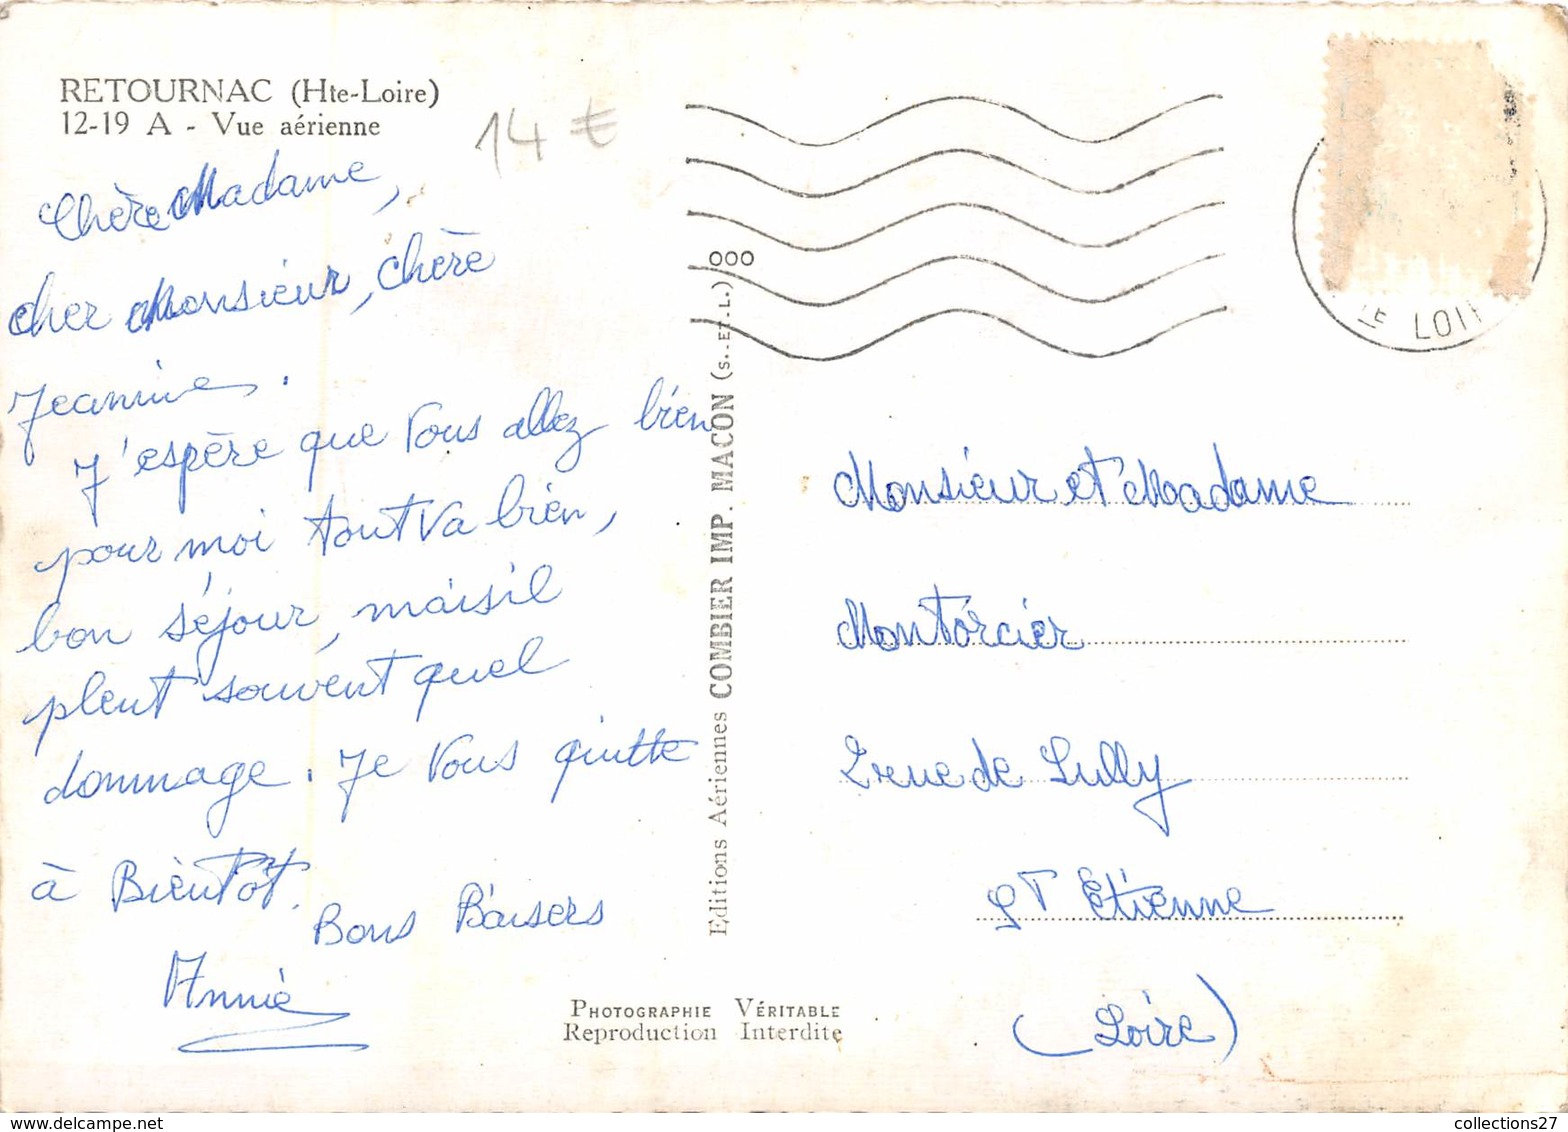 RETOURNAC (Hte-Loire)
12-19 A - Vue aérienne
14 €
Chère Madame,
cher Monsieur, chère
Jeannine.
J'espère que vous allez bien
pour moi tout va bien,
bon séjour, mais il
pleut souvent quel
dommage. Je vous quitte
à Bientôt.
Bons Baisers
Annie
Editions Aériennes COMBIER IMP. MACON (S.-ET-L.)
000
TE LOIR
Monsieur et Madame
Montorcier
2 rue de Sully
St Etienne
(Loire)
PHOTOGRAPHIE VÉRITABLE
Reproduction Interdite
delcampe.net
collections27